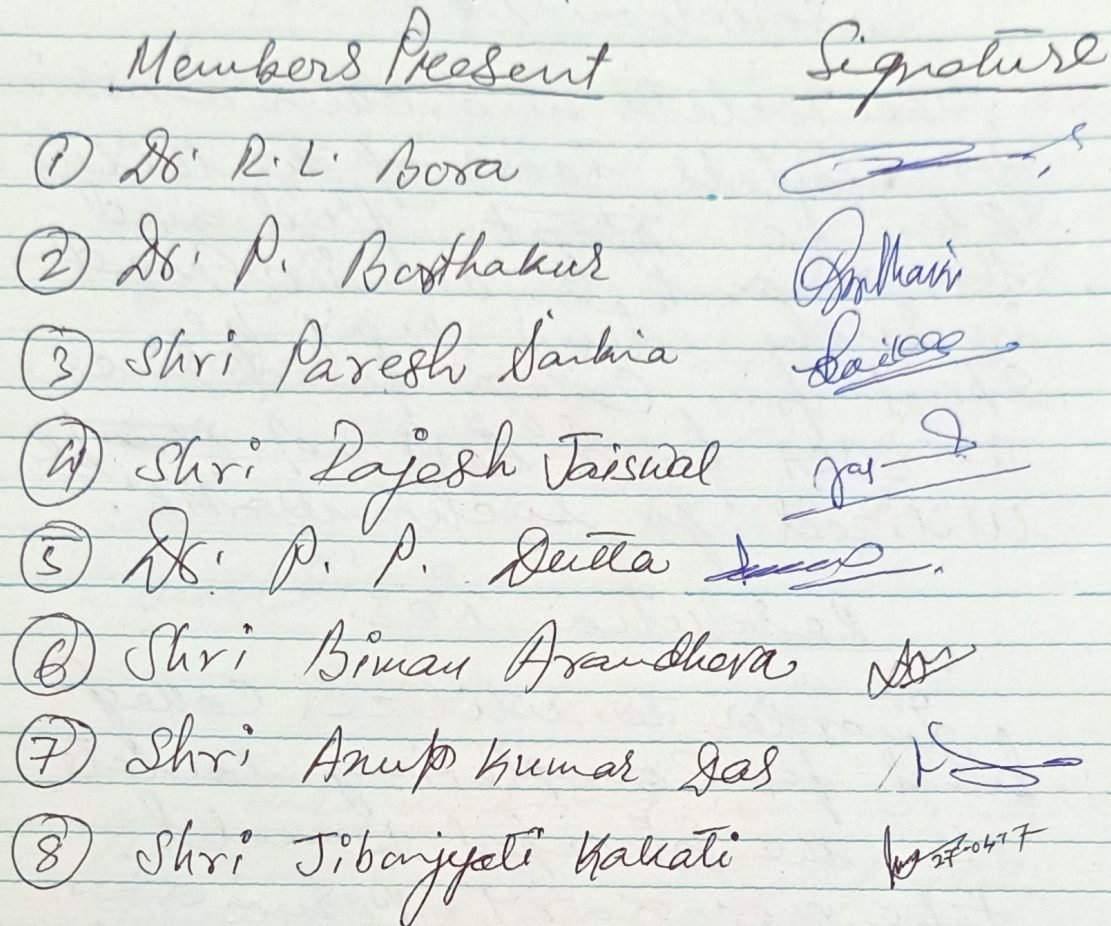 Members Present Signature
① Dr. R. L. Bora
② Dr. P. Borthakur
③ Shri Paresh Saikia
④ Shri Rajesh Jaiswal
⑤ Dr. P. P. Dutta
⑥ Shri Biman Arandhara
⑦ Shri Anup Kumar Das
⑧ Shri Jibanjyoti Kakati